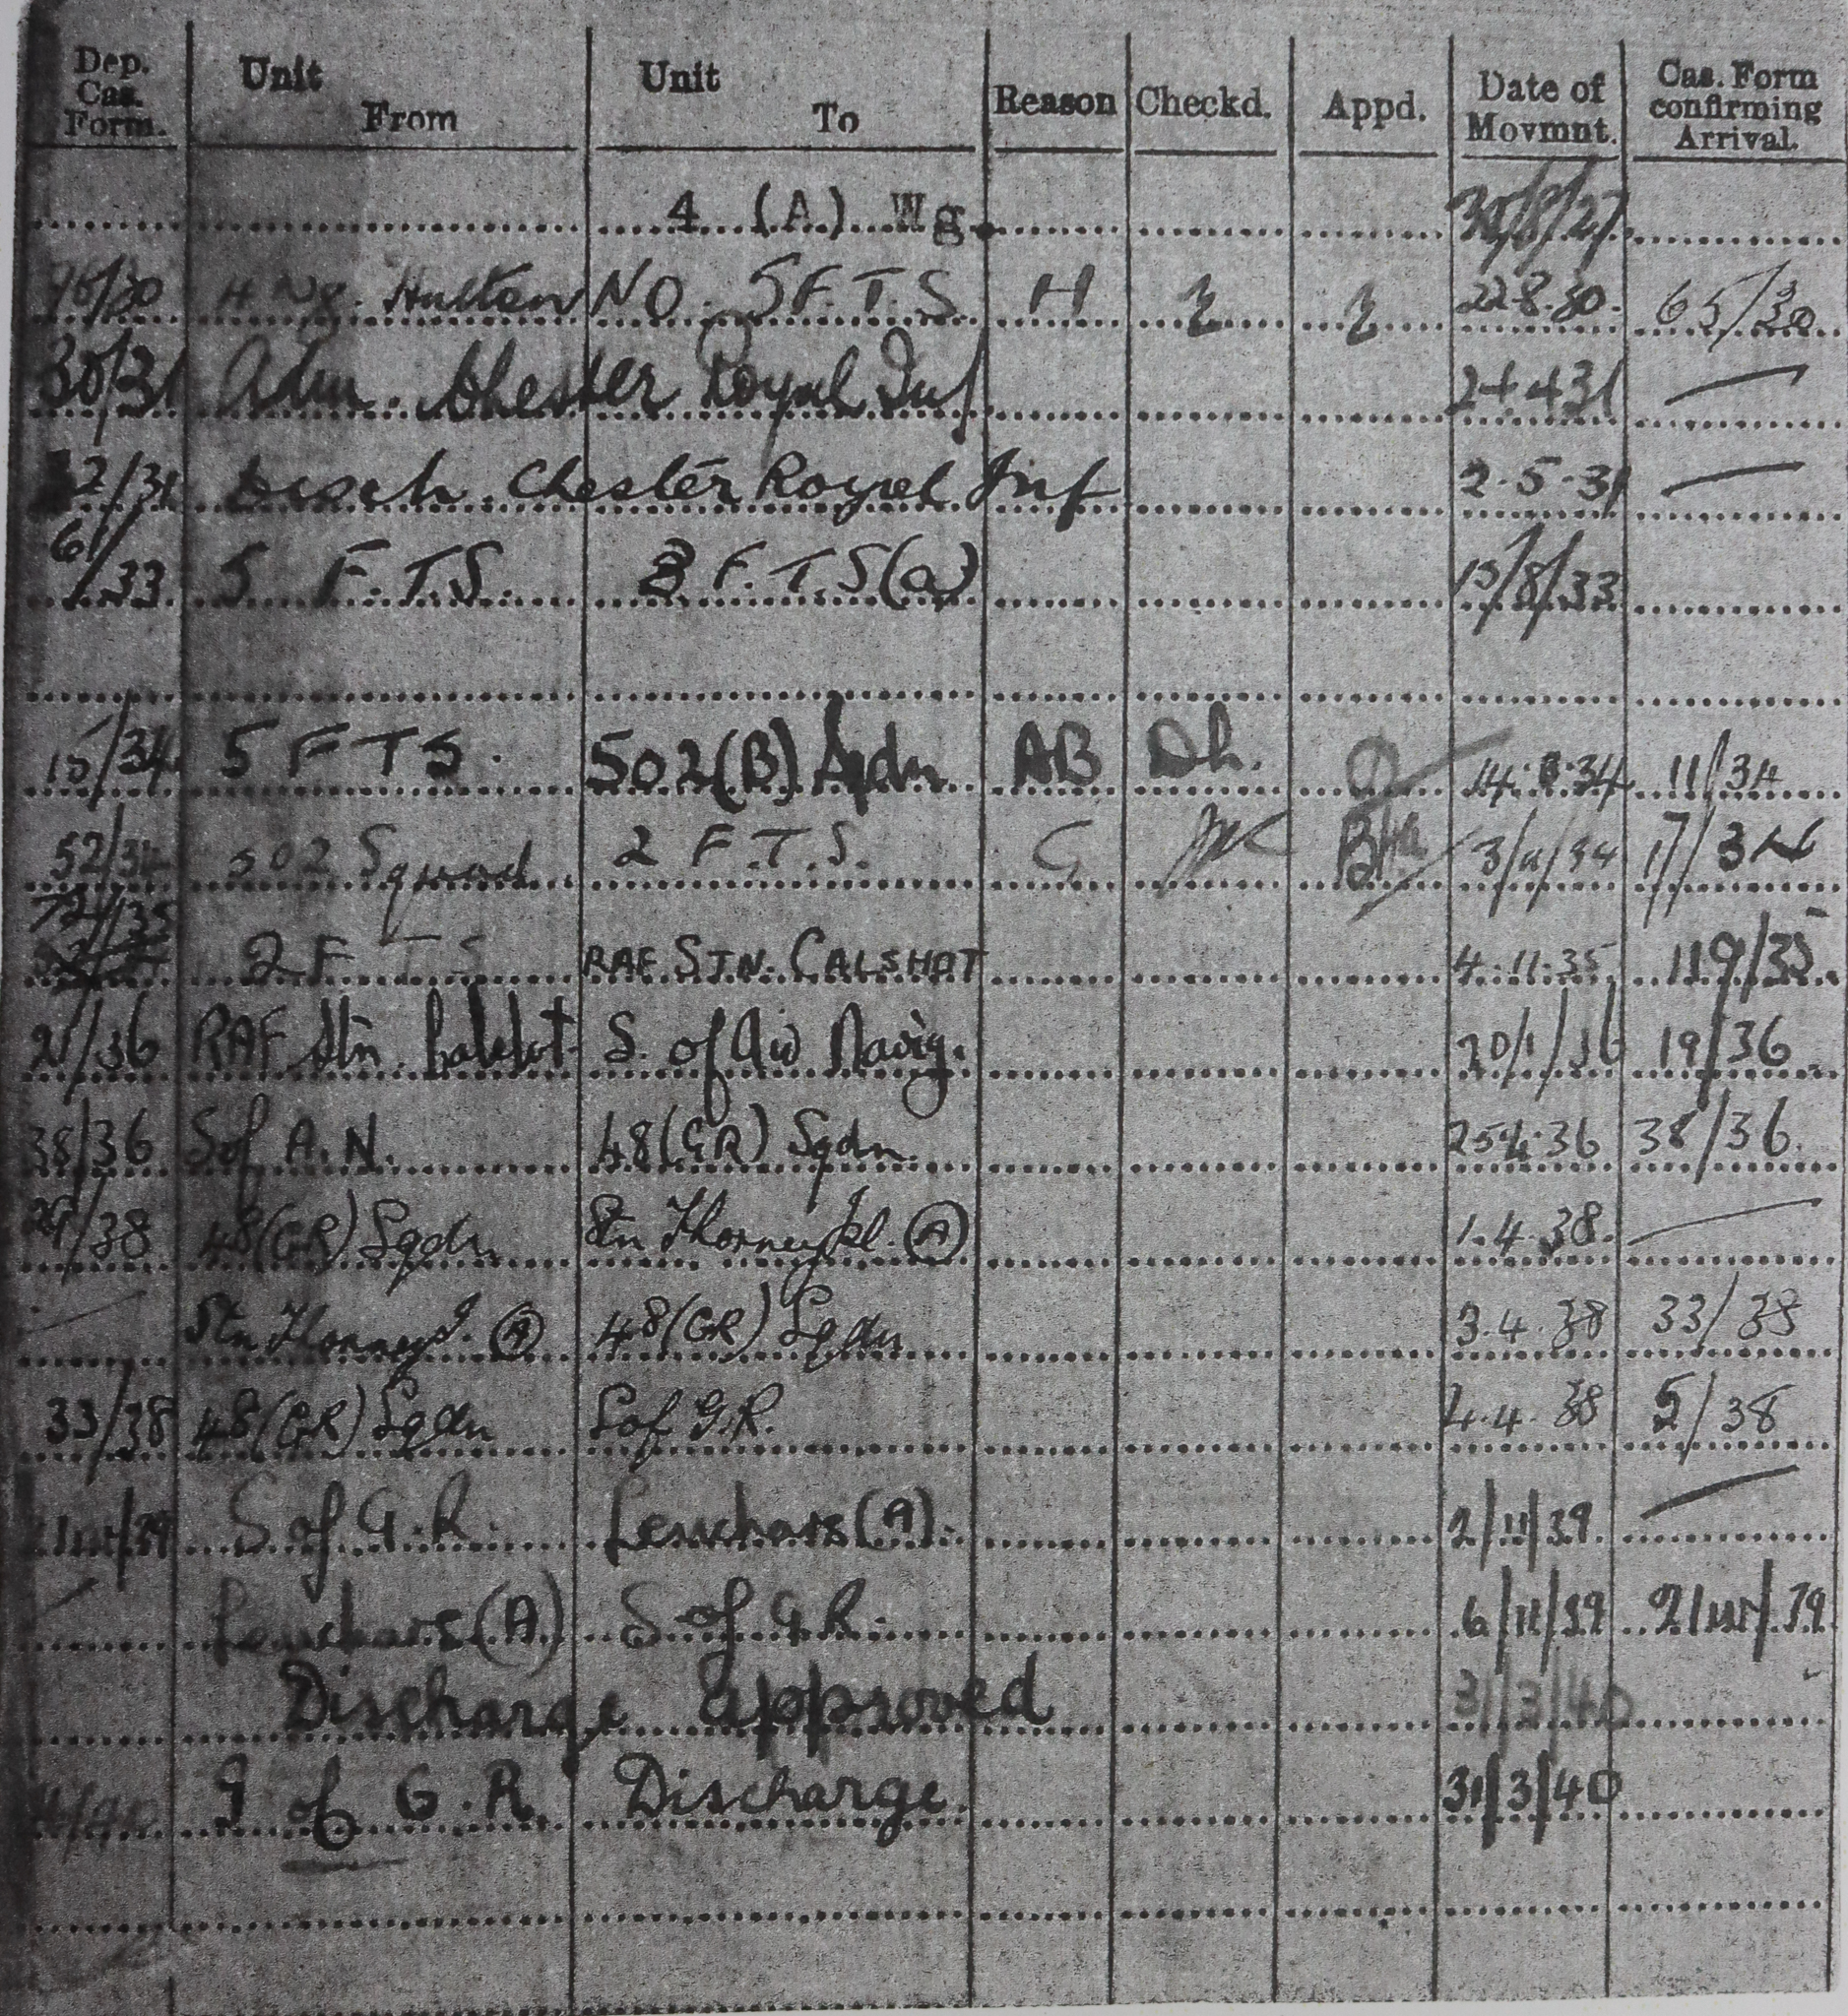 Dep. Cas. Form. Unit From Unit To Reason Checkd. Appd. Date of Movmnt. Cas. Form confirming Arrival.
4 (A) Wg. 30/8/27
/30 Hulton NO. 5 F.T.S. H 22.8.30. 65/30
30/31 Adm. Chester Royal Inf 24.4.31 —
32/31 Disch. Chester Royal Inf 2.5.31 —
61/33 5 F.T.S. 3 F.T.S (a) 15/8/33
15/34 5 F T S. 502 (B) Sqdn AB Dh. 14.3.34 11/34
52/34 502 Squad. 2 F.T.S. C 3/11/34 17/34
72/35 2 F T S RAF STN. CALSHOT 4.11.35 119/35.
2/36 RAF Stn. Calshot. S. of Air Navig. 20/1/36 19/36
38/36 S of A.N. 48 (GR) Sqdn. 25.4.36 38/36.
29/38 48 (GR) Sqdn Stn Thorney Isl. (A) 1.4.38. —
— Stn Thorney I. (A) 48 (GR) Sqdn 3.4.38 33/38
33/38 48 (GR) Sqdn S of G.R. 4.4.38 5/38
/39 S of G.R. Leuchars (A). 2/11/39. —
— Leuchars (A) S of G.R. 6/11/39 /39
Discharge approved 31/3/40
S of G.R. Discharge. 31/3/40